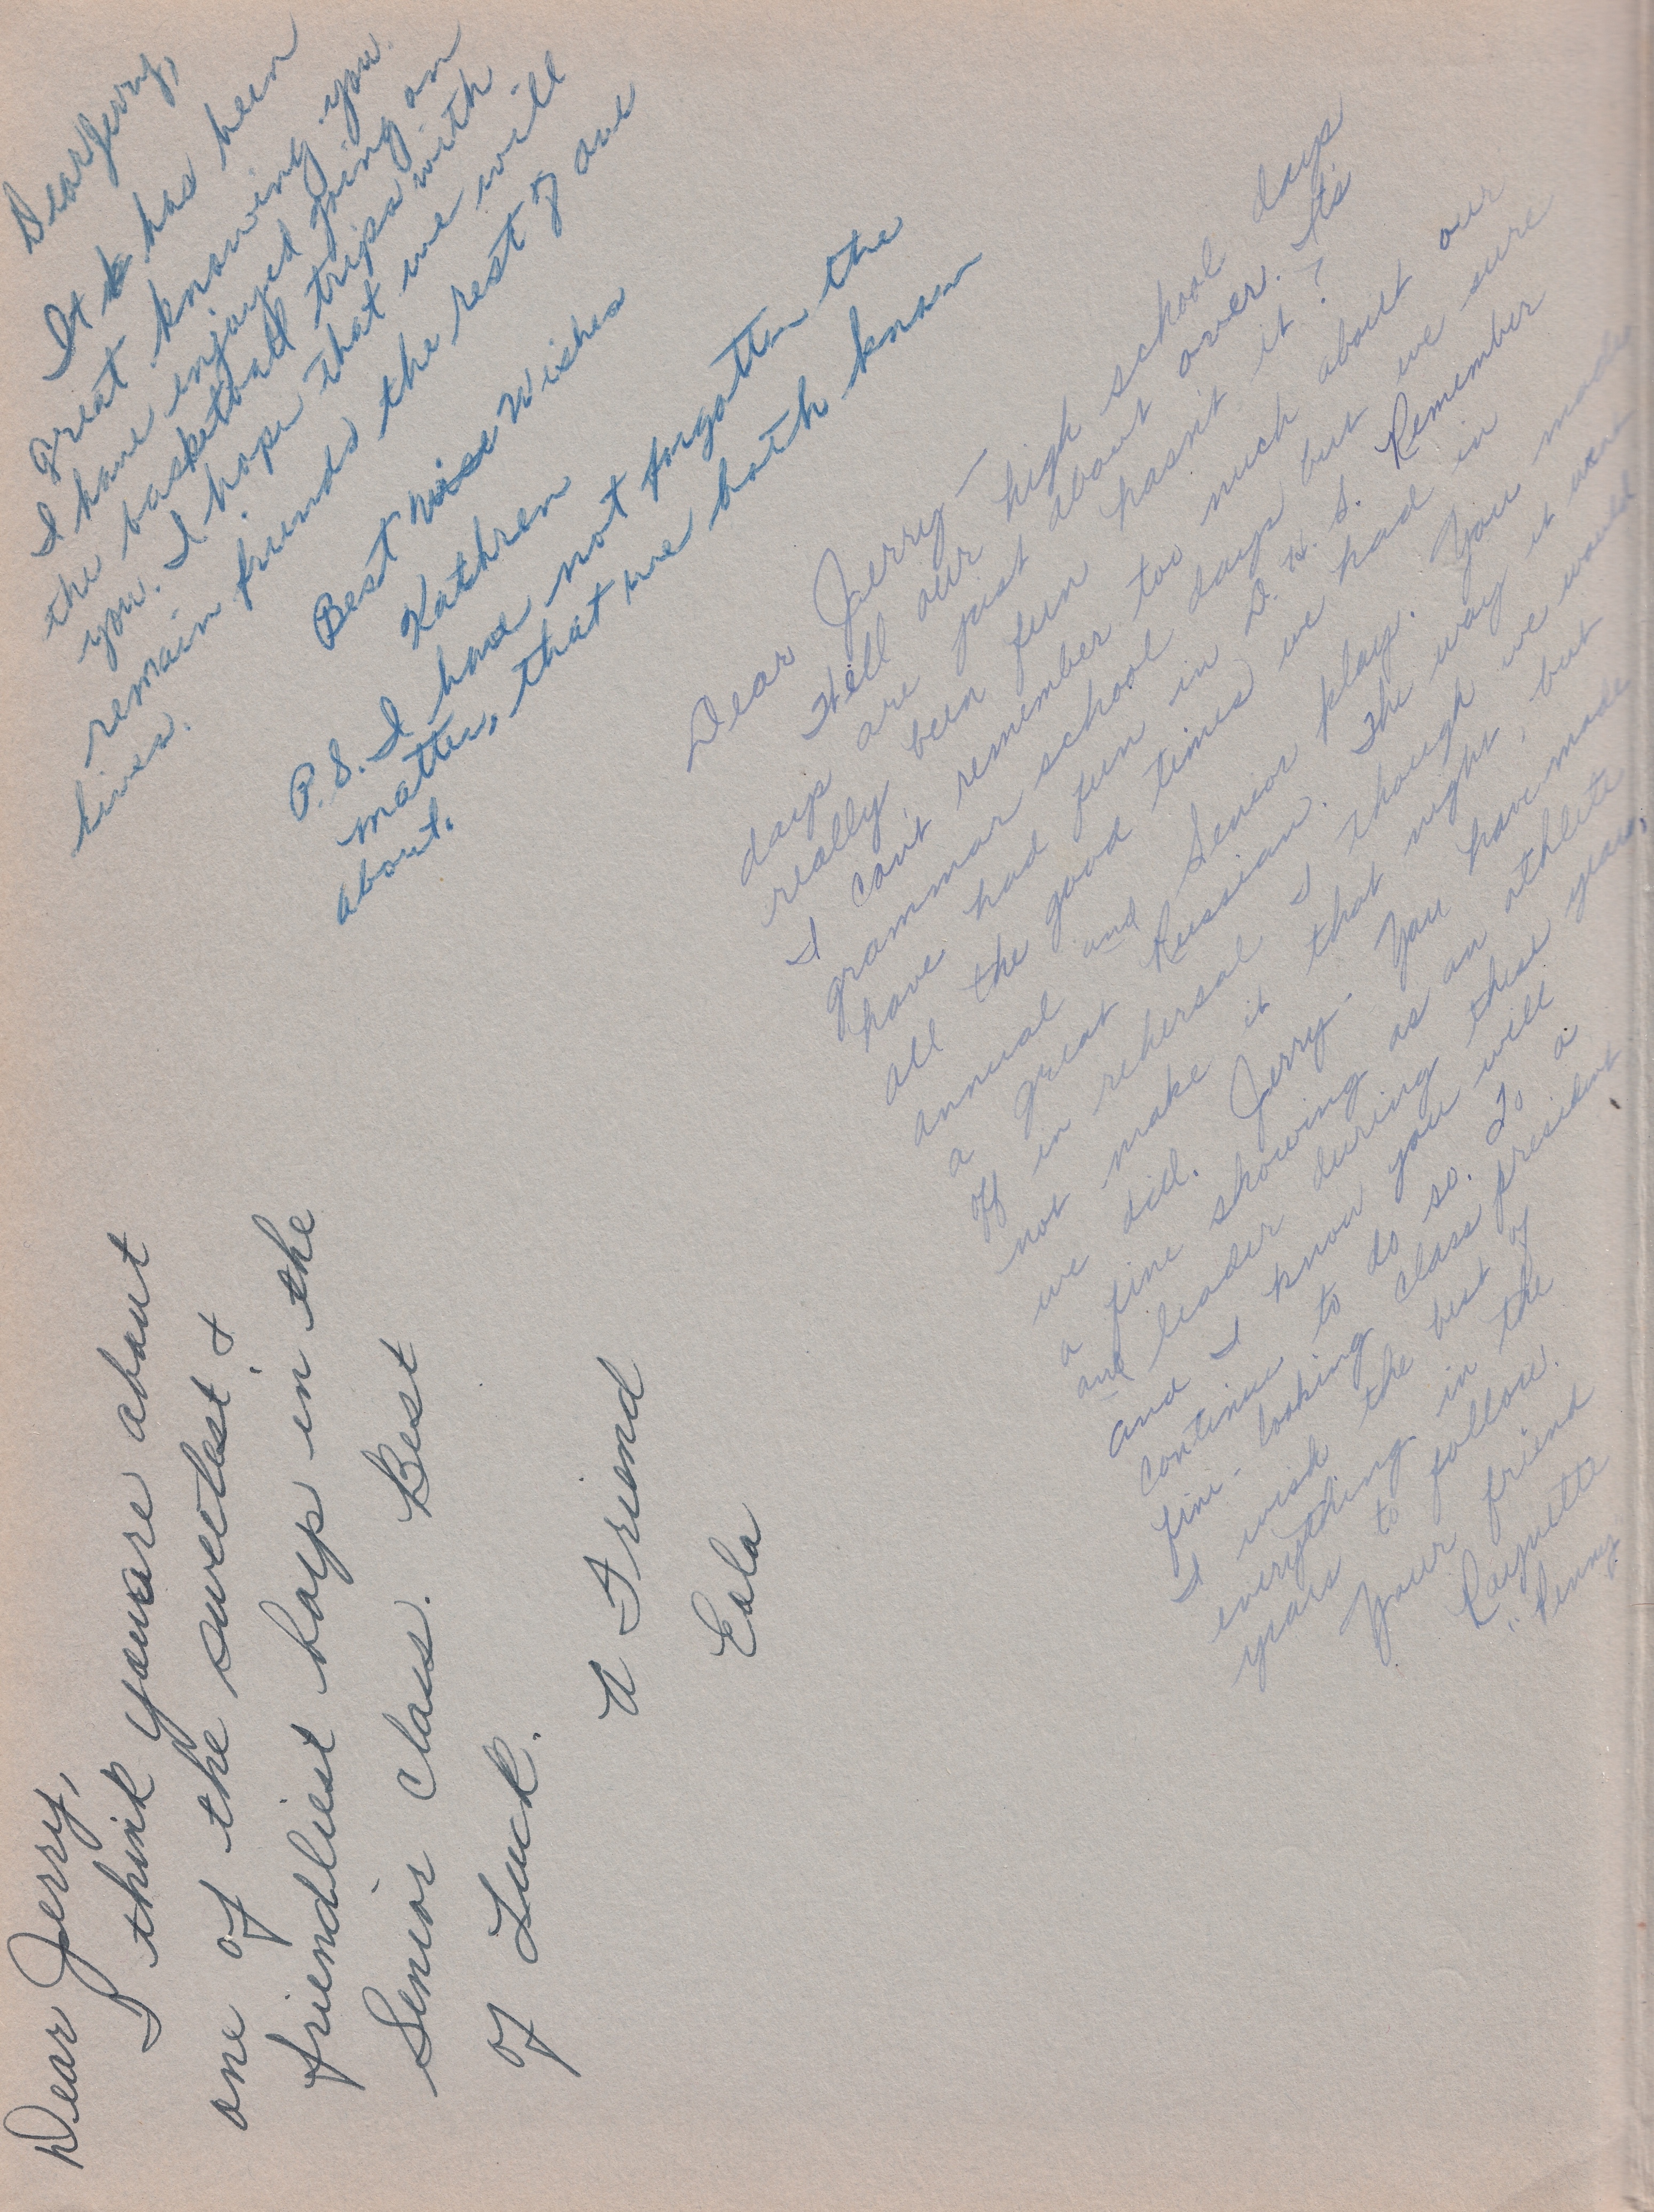 Dear Jerry,
It has been
great knowing you.
I have enjoyed going on
the basketball trips with
you. I hope that we will
remain friends the rest of are
lives.
Best Wishes
Kathren
P.S. I have not forgotten the
matter, that we both know
about.
Dear Jerry,
I think youare about
one of the sweetest &
friendliest boys in the
Senior Class. Best
of Luck.
A Friend
Eola
Dear Jerry—
Well our high school days
days are just about over. It's
really been fun hasn't it?
I can't remember too much about our
grammar school days but we sure
have had fun in D.H.S. Remember
all the good times we had in
annual and Senior play. You made
a great Russian. The way it went
off in rehersal I though we would
not make it that night, but
we did. Jerry you have made
a fine showing as an athlete
and leader during these years,
and I know you will
continue to do so. To a
fine-looking class president
I wish the best of
everything in the
years to follow.
Your friend
Raynette
"Penny